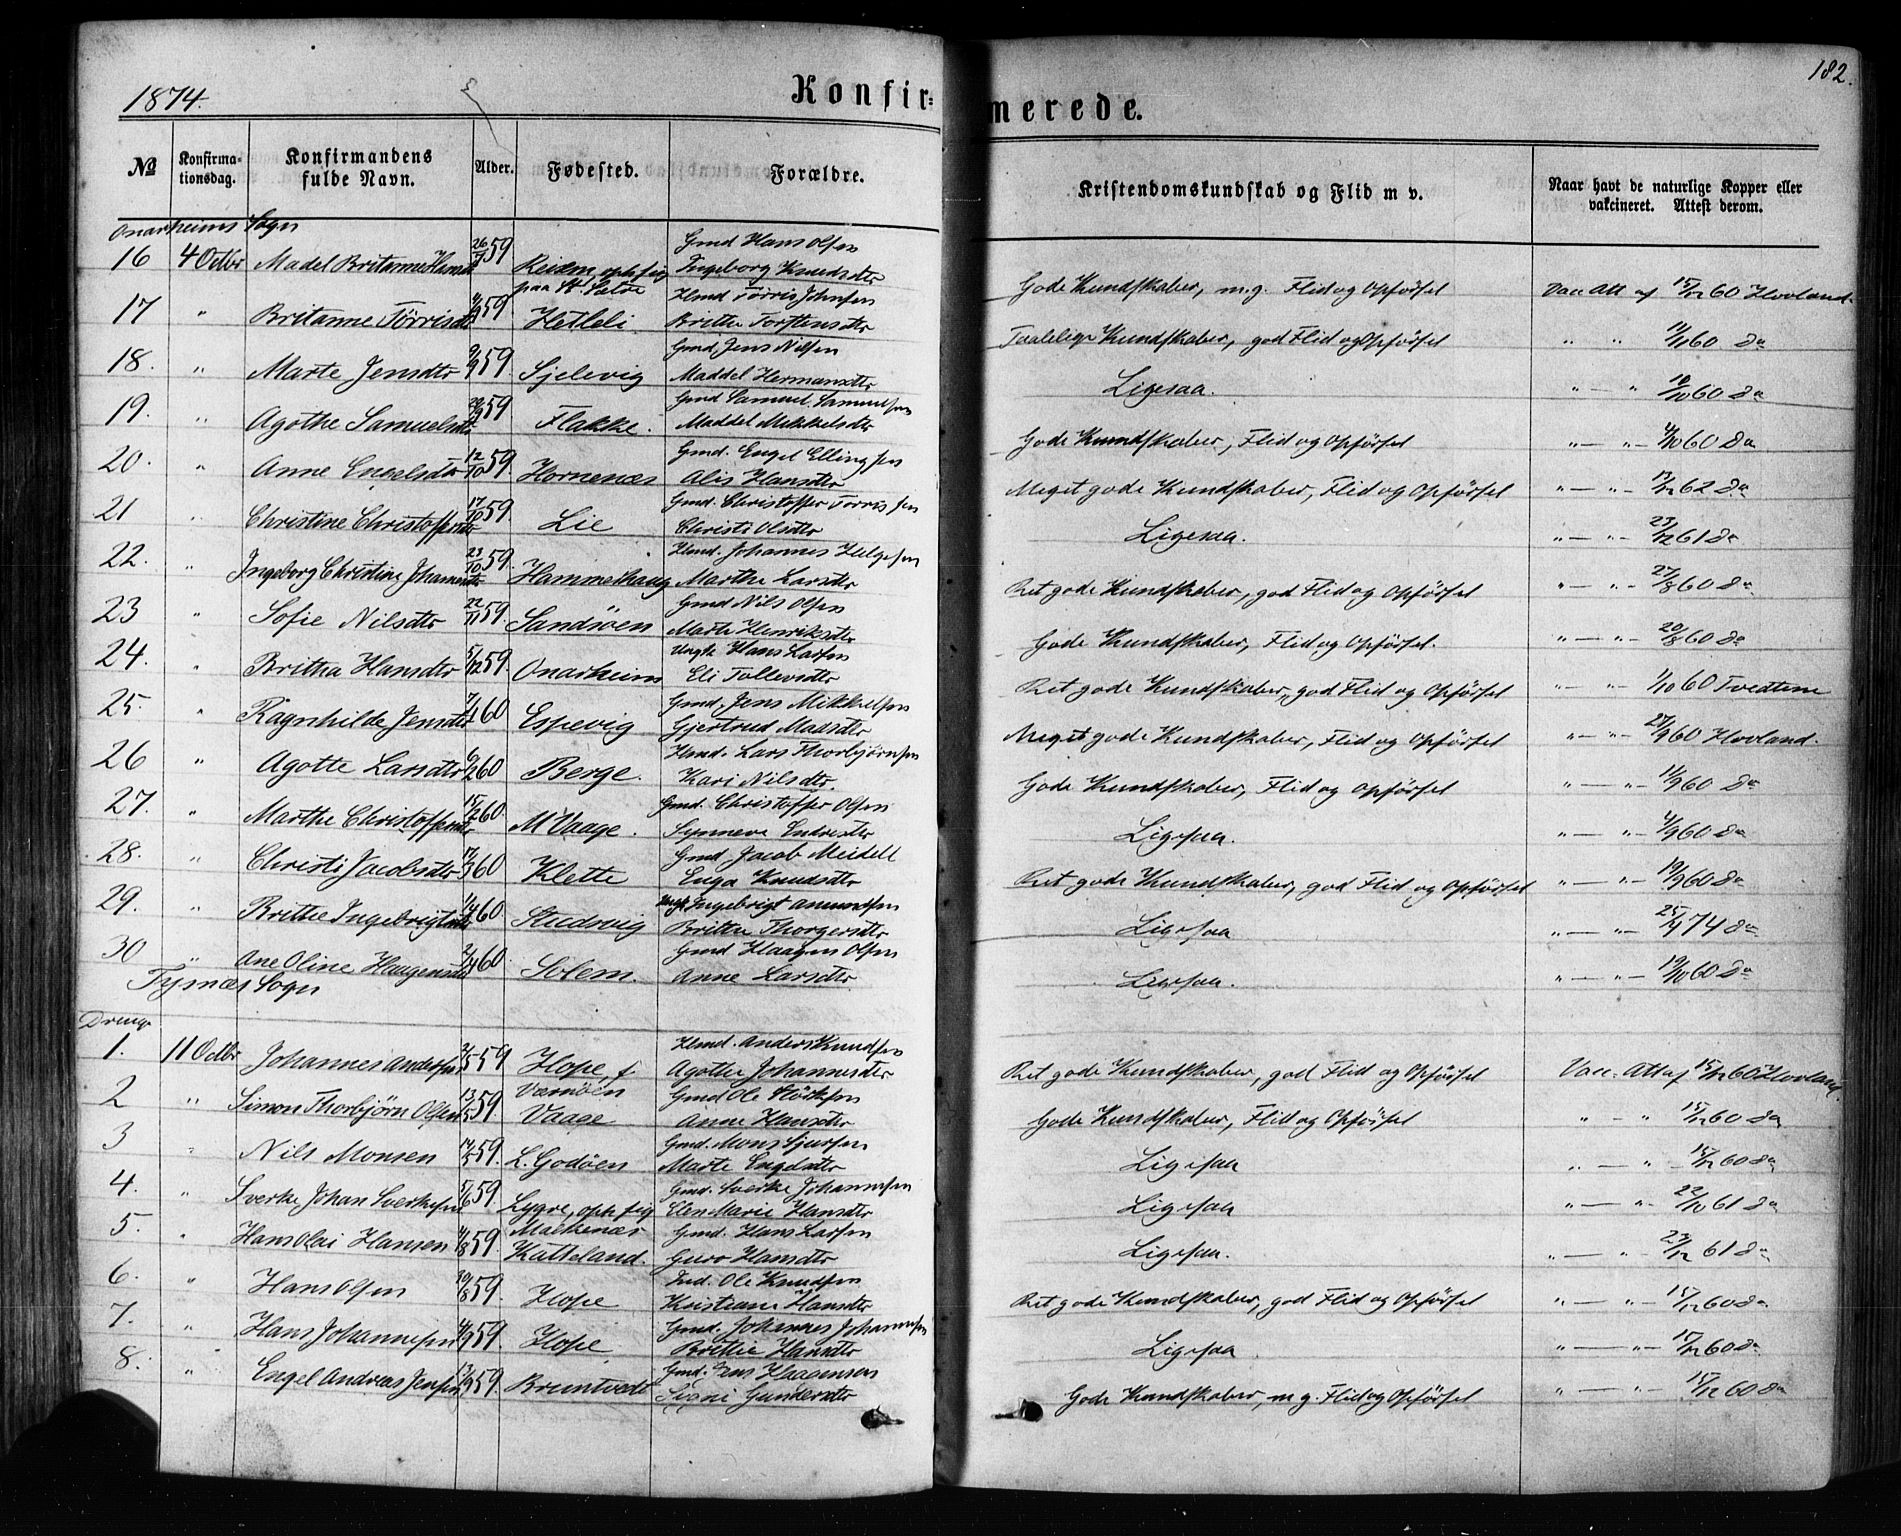 1874.
Konfir=
merede.
182.
№
Konfirma-
tionsdag.
Konfirmandens
fulde Navn.
Alder.
Fødested.
Forældre.
Kristendomskundskab og Flid m v.
Naar havt de naturlige Kopper eller
vakcineret. Attest derom.
Onarheims Sogn
16 4 Octbr Madel Britanne Hansd 59 Reiem, oph sig paa St. Sætre Gmd Hans Olsen Ingeborg Knudsdtr Gode Kundskaber, m.g. Flid og Opførsel Vac Att af 15/12 60 Hovland
17 " Britanne Tørrisd 59 Hetleli Hmd Tørris Johnsen Brithe Torstensdtr Taalelige Kundskaber, god Flid og Opførsel " " 60 Do
18. " Marte Jensdtr 9/9 59 Sjelevig Gmd, Jens Nilsen Maddel Hermansdtr Ligesaa. " — " 60 Do
19. " Agothe Samuelsdtr 59 Flakke. Gmd Samuel Samuelsen Maddel Mikkelsdtr Gode Kundskaber, Flid og Opførsel " — " 4/10 60 Do
20. " Anne Engelsdtr 12/10 59. Hornenæs Gmd. Engel Ellingsen Alis Hansdtr Meget gode Kundskaber, Flid og Opførsel " — " 62 Do
21 " Christine Christoffersdtr 17/10 59. Lie Gmd. Christoffer Tørrissen Christi Olsdtr Ligesaa. " — " 23/12 61 Do
22. " Ingeborg Christine Johannesdtr 23/10 59. Hammerhaug Hmd. Johannes Helgesen Marthe Larsdtr Ret gode Kundskaber, god Flid og Opførsel " — " 27/8 60 Do
23 " Sofie Nilsdtr 22/11 59. Sandøen Gmd Nils Olsen Marte Henriksdtr Gode Kundskaber, Flid og Opførsel. " — " 20/8 60 Do
24. " Britha Hansdtr 5/12 59. Onarheim Ungk Hans Larsen Eli Tollevsdtr Ret gode Kundskaber, god Flid og Opførsel " — " 1/10 60 Tvedtene
25. " Ragnhilde Jensdtr 60 Espevig Gmd, Jens Mikkelsen Gjertrud Madsdtr Meget gode Kundskaber, Flid og Opførsel " — " 60 Hovland.
26 " Agotte Larsdtr 6/2 60 Berge. Hmd. Lars Thorbjørnsen Kari Nilsdtr. Gode Kundskaber, Flid og Opførsel " — " 60 Do
27. " Marthe Christoffersdtr 15/2 60. M Vaage. Gmd. Christoffer Olsen Synneve Endresdtr Ligesaa. " — " 4/9 60 Do
28. " Christi Jacobsdtr 60 Klette Gmd, Jacob Meidell Inga Knudsdtr Ret gode Kundskaber, god Flid og Opførsel " — " 19/9 60 Do
29. " Brithe Ingebrigtsdtr 60. Studsvig Ungk Ingebrigt Amundsen Britha Thorgersdtr Ligesaa " — " 74 Do
30 " Ane Oline Haagensdtr 60. Solem. Gmd Haagen Olsen Anne Larsdtr Ligesaa. " — " 19/10 60 Do
Tysnæs Sogn
Drenge
1. 11 Octbr Johannes Andersen 2/5 59 Hope, f Værnøen Hmd. Anders Knudsen Agothe Johannesdtr Ret gode Kundskaber, god Flid og Opførsel Vac. Att af 15/12 60 Hovland.
2 " Simon Thorbjørn Olsen 13/5 59 Vaage Gmd Ole Størksen Anne Hansdtr Gode Kundskaber, Flid og Opførsel " " 15/12 60 Do
3 " Nils Monsen 59. L. Godøen Gmd. Mons Sjursen Marte Engelsdtr Ligesaa " — " 15/12 60 Do
4. " Sverke Johan Sverkesen 5/6 59 Lygre, oph sig Malkenæs Gmd. Sverke Johannesen Elen Marie Hansdtr Ligesaa " — " 22/10 61 Do
5. " Hans Olai Hansen 59 Katteland. Gmd. Hans Larsen Guro Hansdtr Ligesaa. " — " 23/12 61 Do
6. " Hans Olsen 59 Hope Ind. Ole Knudsen Kristiane Hansdtr Ret gode Kundskaber, god Flid og Opførsel " — " 15/12 60 Do
7. " Hans Johannesen 59 Hope Gmd. Johannes Johannesen Brithe Hansdtr Ligesaa " — " 60 Do
8. " Engel Andreas Jensen 13/9 59 Bruntvedt Gmd. Jens Haagensen Signi Gundersdtr Gode Kundskaber, m.g. Flid og Opførsel " — " 15/12 60 Do